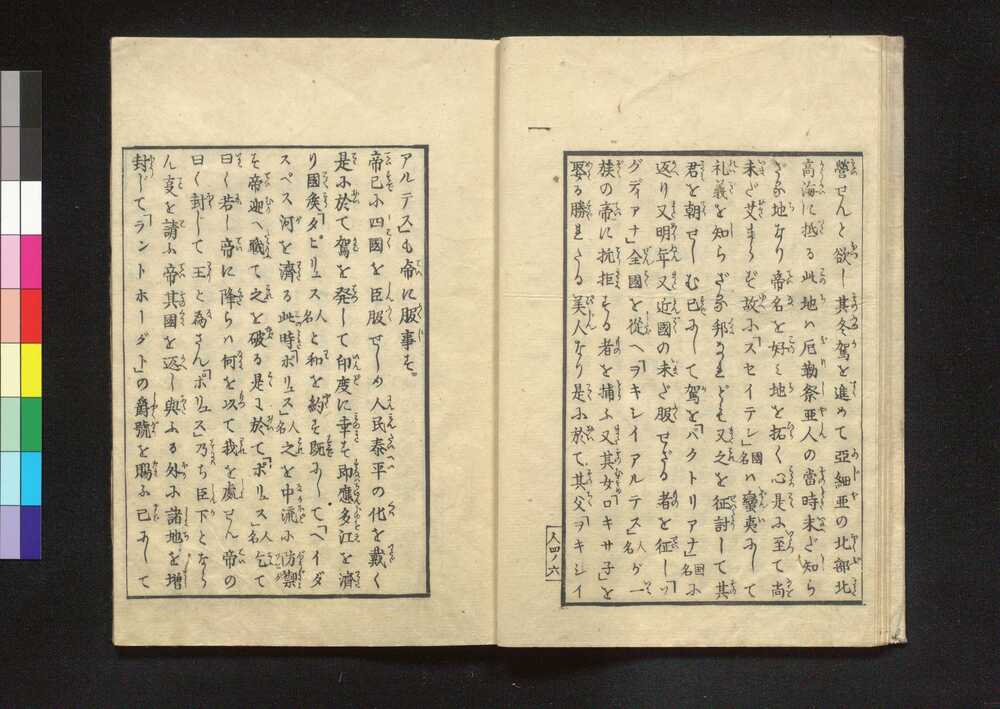 營せんと欲し其冬駕を進めて亞細亞の北部北
高海に抵る此地ハ厄勒祭亜人の當時未ど知ら
ざる地なり帝名を好ミ地を拓く心是ふ至て尚
未ど艾まらず故ふ「スセイテン」國名ハ蠻夷ふして
礼義を知らざる邦なれども又之を征討して其
君を朝せしむ已ふして駕を「バクトリアナ」國名ふ
返り又明年又近國の未ど服せざる者を征し「ソ
グディアナ」全國を從へ「ヲキレイアルテス」人名ゲ一
族の帝に抗拒する者を捕ふ又其女「ロキサ子」を
娶る勝れたる美人なり是ふ於て其父「ヲキシイ
一
人四ノ六
アルテス」も帝に服事す。
帝已ふ四國を臣服せしめ人民泰平の化を戴く
是ふ於て駕を発して印度に幸す印應多江を濟
り國矦「タピリュス」人名と和を約す既ふして「ヘイダ
スペス河を濟る此時「ポリュス」人名之を中流ふ防禦
す帝迎へ戰て之を破る是に於て「ポリュス」人名乞て
曰く若し帝に降らハ何を以て我を處せん帝の
曰く封して王と為さん「ポリュス」乃ち臣下となら
ん𡖋を請ふ帝其國を返し與ふる外ふ諸地を増
封じて「ラントホーグト」の爵號を賜ふ已ふして